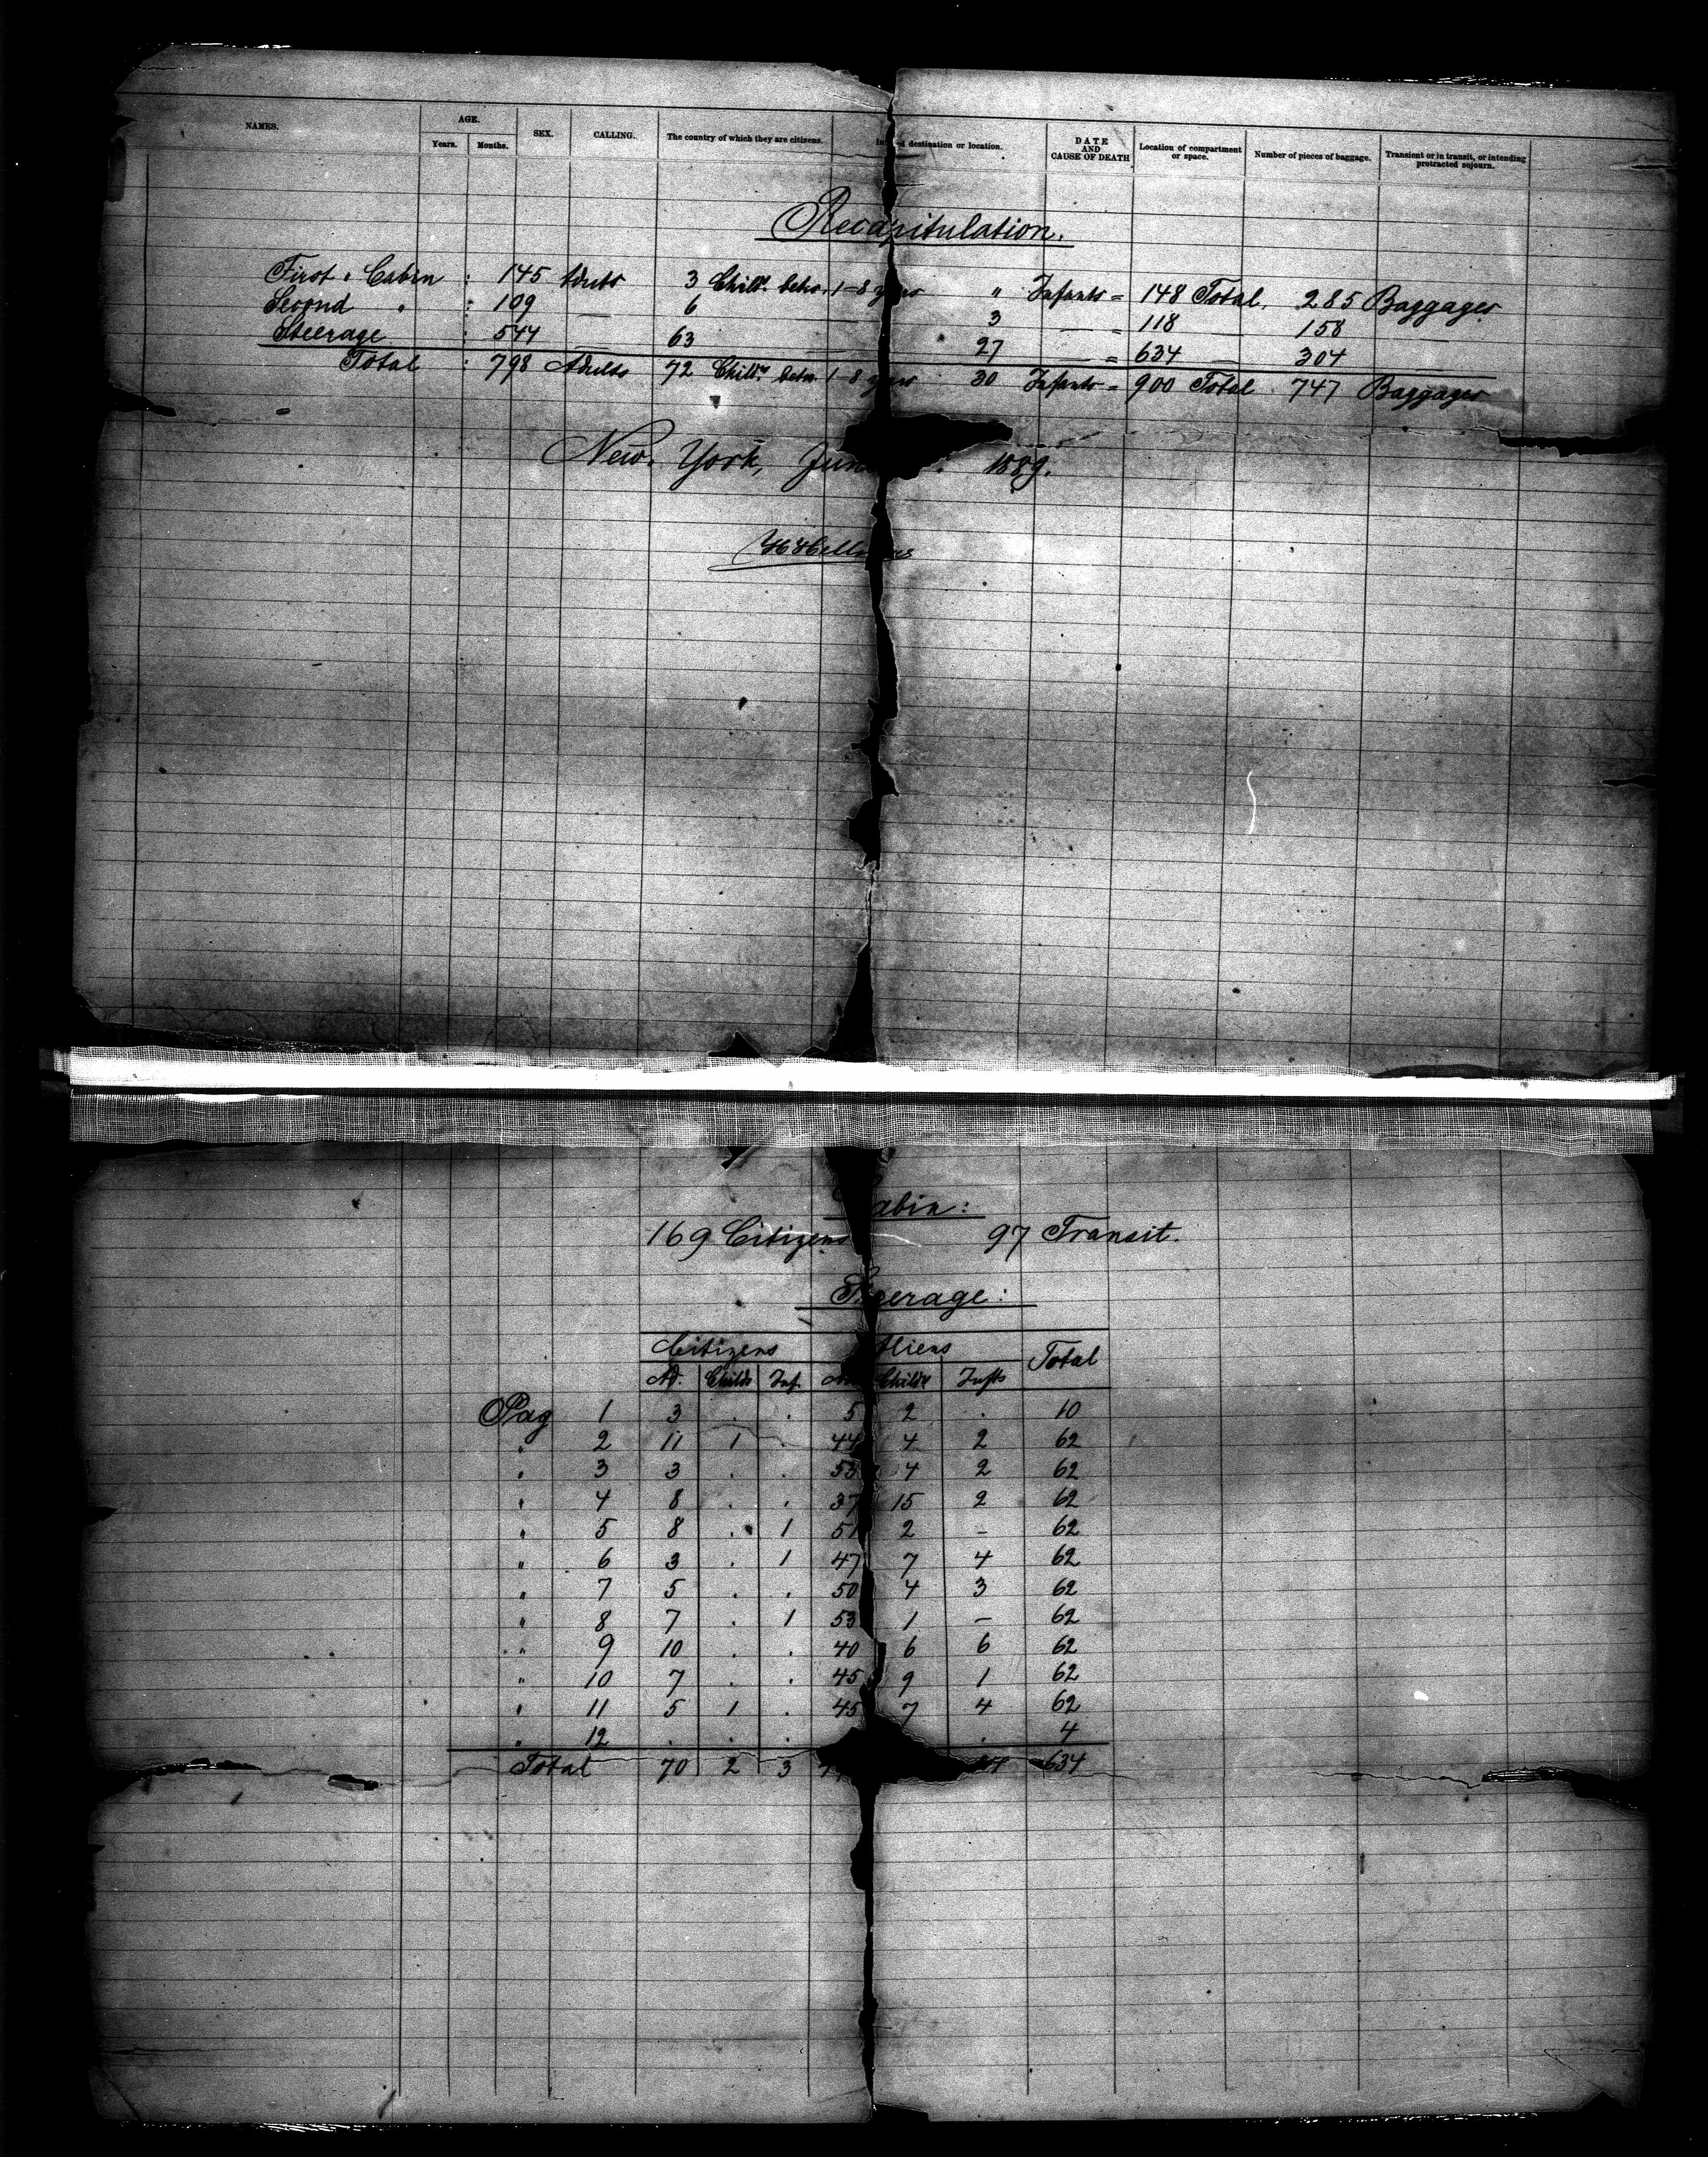 NAMES. AGE. SEX. CALLING. The country of which they are citizens. destination or location. DATE AND CAUSE OF DEATH Location of compartment or space. Number of pieces of baggage. Transient or in transit, or intending protracted sojourn.
Years. Months.
Recapitulation.
First Cabin : 145 Adults 3 Childn. betw. 1-8 years " Infants = 148 Total. 285 Baggages
Second " : 109 — 6 — 3 — = 118 — 158 —
Steerage : 544 — 63 — 27 — = 634 — 304 —
Total : 798 Adults 72 Childn. betw. 1-8 years 30 Infants = 900 Total 747 Baggages
New York, Jun 1889.
abin:
169 Citizens 97 Transit.
Steerage:
Citizens Aliens Total
Ad. Childn Inf. Ad Childn Infts
Pag 1 3 . . 5 2 . 10
" 2 11 1 . 44 4 2 62
" 3 3 . . 53 4 2 62
" 4 8 . . 37 15 2 62
" 5 8 . 1 51 2 – 62
" 6 3 . 1 47 7 4 62
" 7 5 . . 50 4 3 62
" 8 7 . 1 53 1 – 62
" 9 10 . . 40 6 6 62
" 10 7 . . 45 9 1 62
" 11 5 1 . 45 7 4 62
" 12 . . . . 4
Total 70 2 3 634